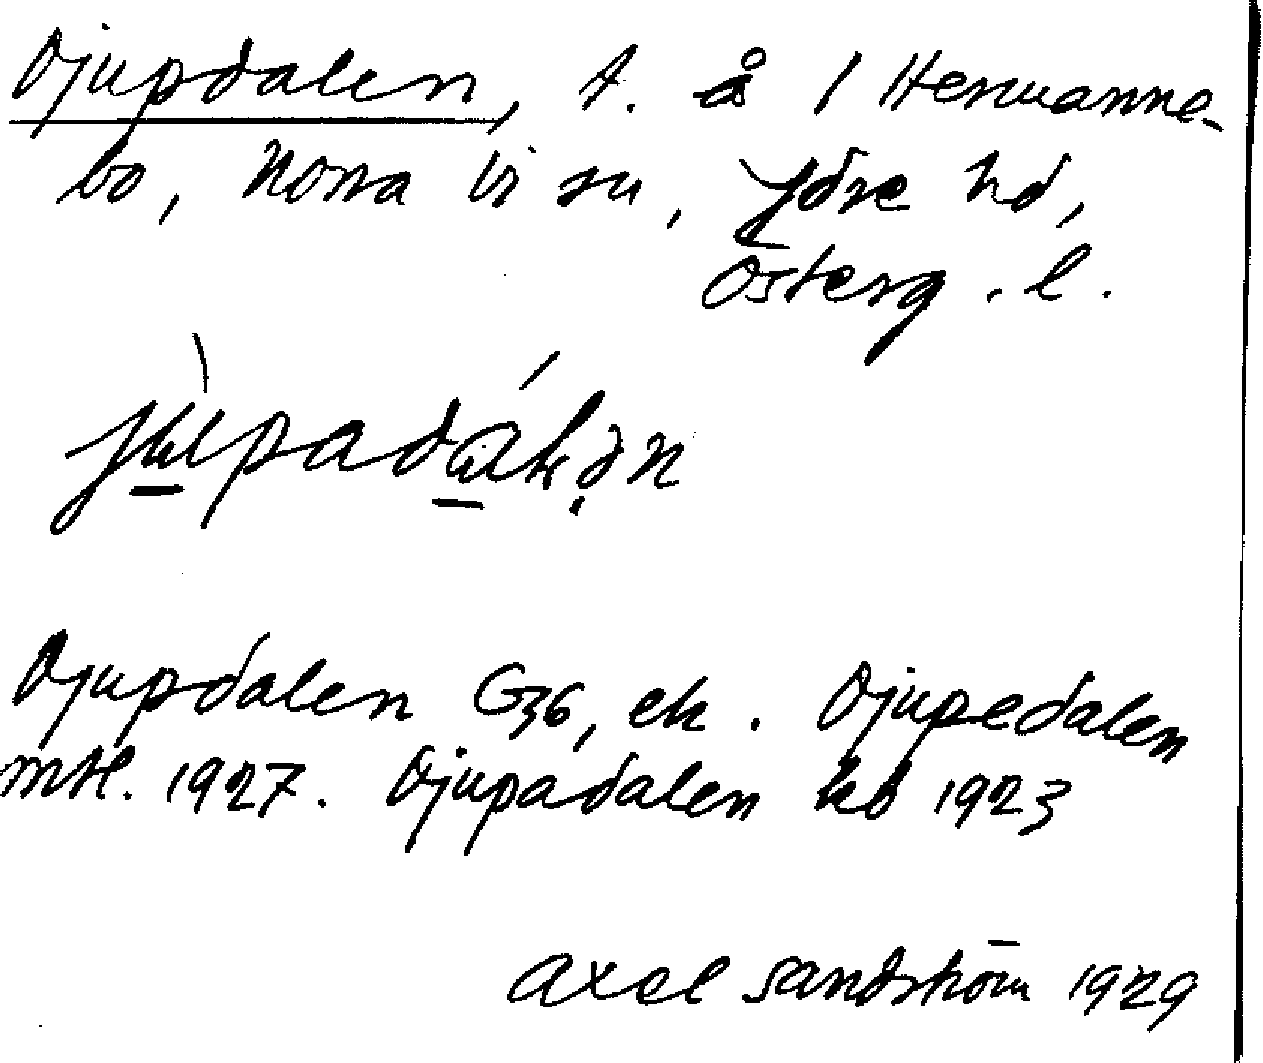 Djupdalen, t. å 1 Hermanne-
bo, Norra Vi sn, Ydre hd,
Österg. l.
Djupdalen G36, ek. Djupedalen
mtl. 1927. Djupadalen kb 1923
Axel Sandström 1929